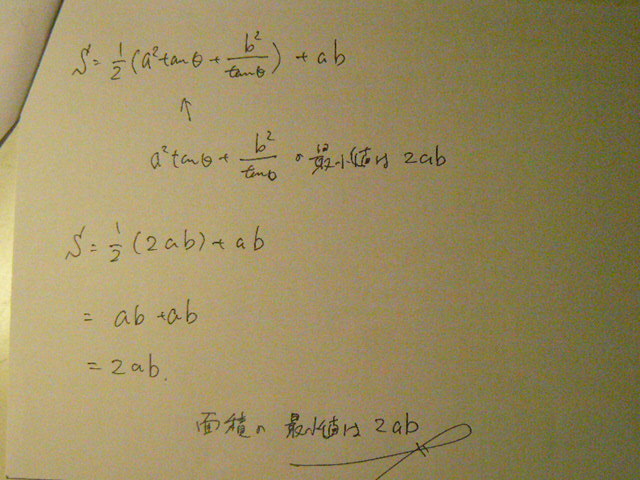 S = 1/2 (a² tan θ + b²/tan θ) + ab
↑
a² tan θ + b²/tan θ の最小値は 2ab
S = 1/2 (2ab) + ab
= ab + ab
= 2ab.
面積の最小値は 2ab